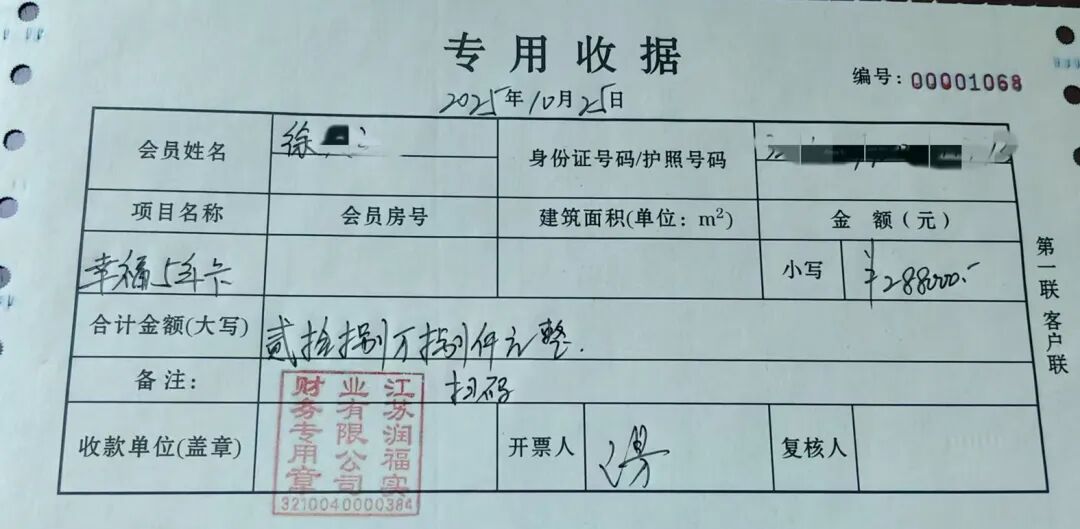 专用收据
编号: 00001068
2025年10月25日
会员姓名 徐 身份证号码/护照号码
项目名称 会员房号 建筑面积(单位: m²) 金 额（元）
幸福5年卡 小写 ¥288000.-
合计金额(大写) 贰拾捌万捌仟元整.
备注: 扫码
收款单位(盖章) 开票人 复核人
江苏润福实
业有限公司
财务专用章
3210040000384
第一联 客户联